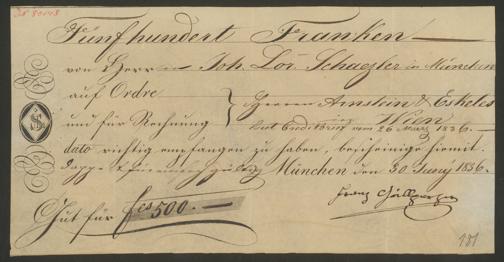 Fünfhundert Franken
von Herrn Joh. Lor. Schaezler in München
auf Ordre
und für Rechnung
Herren Arnstein & Eskeles
Wien
laut Creditbrief vom 26 März 1836.
dato richtig empfangen zu haben, bescheinige hiermit.
München den 30 Juny 1836.
Gut für fcs 500.
Franz
181